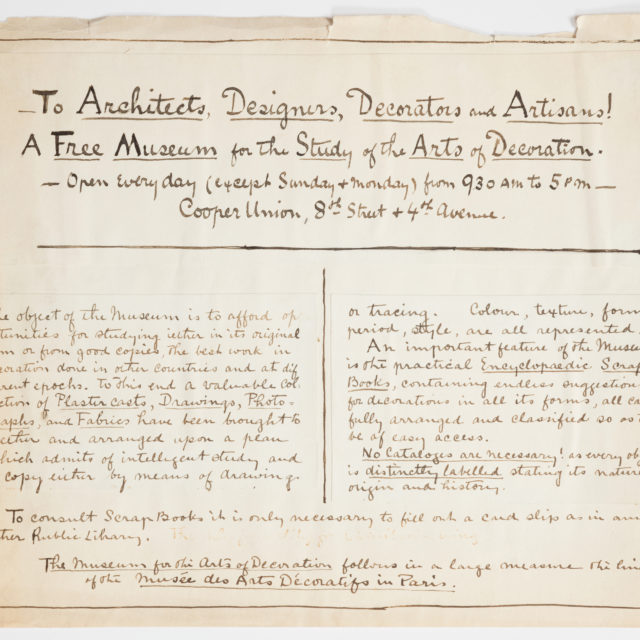 To Architects, Designers, Decorators and Artisans!
A Free Museum for the Study of the Arts of Decoration.
— Open Every day (except Sunday + Monday) from 930 AM to 5 PM —
Cooper Union, 8th Street + 4th Avenue.
e object of the Museum is to afford op
tunities for studying either in its original
m or from good copies, the best work in
oration done in other countries and at dif
rent epochs. To this end a valuable Col
ction of Plaster casts, Drawings, Photo-
aphs, and Fabrics have been brought to
ether and arranged upon a plan
hich admits of intelligent study and
copy either by means of drawings
or tracing. Colour, texture, form
period, style, are all represented
An important feature of the Museu
is the practical Encyclopaedic Scrap
Books, containing endless suggestion
for decorations in all its forms, all ca
fully arranged and classified so as t
be of easy access.
No Cataloges are necessary! as every ob
is distinctly labelled stating its nature
origin and history.
To consult Scrap Books it is only necessary to fill out a card slip as in an
ther Public Library.
The Museum for the Arts of Decoration follows in a large measure the lin
of the Musée des Arts Décoratifs in Paris.